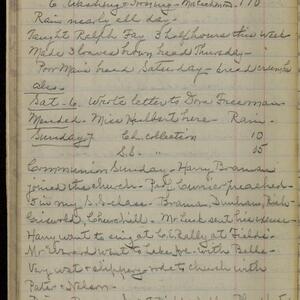 6 Washing & Ironing - 1.10
Rain nearly all day.
Taught Ralph Fay 3 half hours this week
Made 3 loaves brown bread Thursday -
Poor Man's bread Saturday - bread crumbs
also.
Sat. 6. Wrote letter to Dora Freeman
Mended. Miss Hulbert here - Rain.
Sunday 7 Ch. collection 10
S.S. " 15
Communion Sunday - Harry Braman
joined the church - preached -
5 in my S.S. class - Braman, Dunham,
Griswold, Churchill - Mr Luck sent his excuse -
Harry went to sing at C.E. Rally at Fields
Mr went to Lake with Belle -
Very wet & slippery rode to church with
Fate - Nelson -